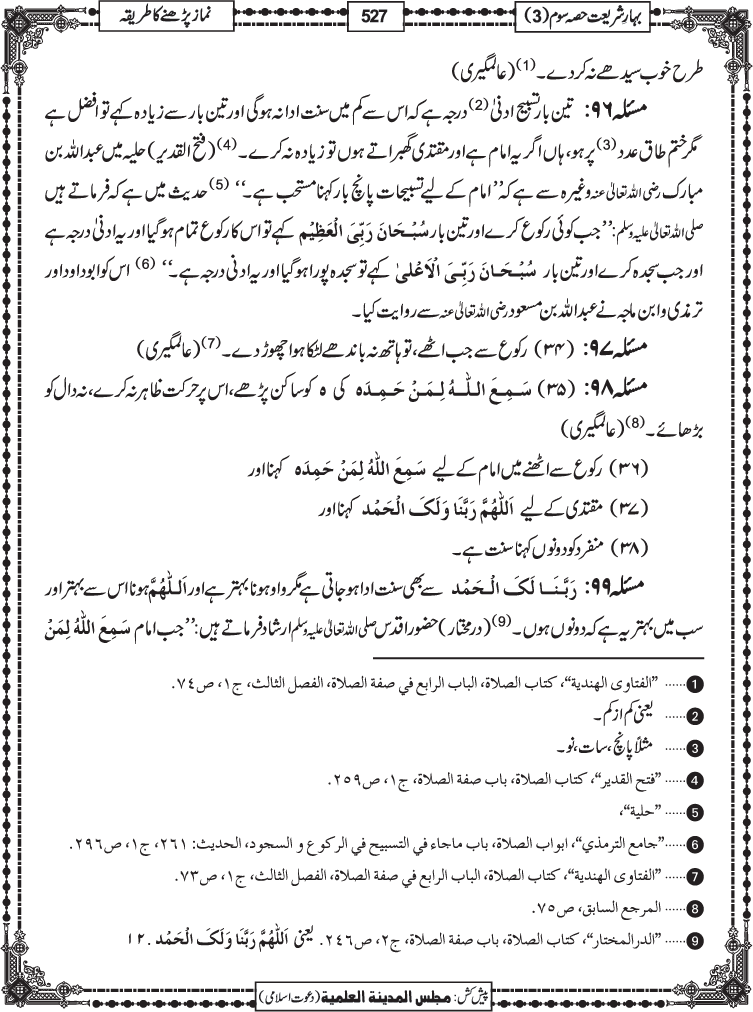 بہارِ شریعت حصہ سوم (3)
527
نماز پڑھنے کا طریقہ
طرح خوب سیدھے نہ کردے۔(1) (عالمگیری)
مسئلہ ۹۶: تین بار تسبیح ادنیٰ(2) درجہ ہے کہ اس سے کم میں سنت ادا نہ ہوگی اور تین بار سے زیادہ کہے تو افضل ہے
مگر ختم طاق عدد(3) پر ہو، ہاں اگر یہ امام ہے اور مقتدی گھبراتے ہوں تو زیادہ نہ کرے۔(4) (فتح القدیر) حلیہ میں عبداللہ بن
مبارک رضی اللہ تعالیٰ عنہ وغیرہ سے ہے کہ ’’امام کے لیے تسبیحات پانچ بار کہنا مستحب ہے۔‘‘ (5) حدیث میں ہے کہ فرماتے ہیں
صلی اللہ تعالیٰ علیہ وسلم: ’’جب کوئی رکوع کرے اور تین بار سُبْحَانَ رَبِّیَ الْعَظِیْم کہے تو اس کا رکوع تمام ہوگیا اور یہ ادنیٰ درجہ ہے
اور جب سجدہ کرے اور تین بار سُبْحَانَ رَبِّیَ الْاَعْلیٰ کہے تو سجدہ پورا ہوگیا اور یہ ادنیٰ درجہ ہے۔‘‘ (6) اس کو ابوداود اور
ترمذی و ابن ماجہ نے عبداللہ بن مسعود رضی اللہ تعالیٰ عنہ سے روایت کیا۔
مسئلہ ۹۷: (۳۴) رکوع سے جب اٹھے، تو ہاتھ نہ باندھے لٹکا ہوا چھوڑ دے۔(7) (عالمگیری)
مسئلہ ۹۸: (۳۵) سَمِعَ اللّٰہُ لِمَنْ حَمِدَہ کی ہ کو ساکن پڑھے، اس پر حرکت ظاہر نہ کرے، نہ دال کو
بڑھائے۔(8) (عالمگیری)
(۳۶) رکوع سے اٹھنے میں امام کے لیے سَمِعَ اللّٰہُ لِمَنْ حَمِدَہ کہنا اور
(۳۷) مقتدی کے لیے اَللّٰھُمَّ رَبَّنَا وَلَکَ الْحَمْد کہنا اور
(۳۸) منفرد کو دونوں کہنا سنت ہے۔
مسئلہ ۹۹: رَبَّنَا لَکَ الْحَمْد سے بھی سنت ادا ہوجاتی ہے مگر واو ہونا بہتر ہے اور اَللّٰھُمَّ ہونا اس سے بہتر اور
سب میں بہتر یہ ہے کہ دونوں ہوں۔(9) (درمختار) حضور اقدس صلی اللہ تعالیٰ علیہ وسلم ارشاد فرماتے ہیں: ’’جب امام سَمِعَ اللّٰہُ لِمَنْ
1 ...... ”الفتاوی الھندیة“، کتاب الصلاة، الباب الرابع في صفة الصلاة، الفصل الثالث، ج۱، ص۷۴.
2 ...... یعنی کم از کم۔
3 ...... مثلاً پانچ، سات، نو۔
4 ...... ”فتح القدیر“، کتاب الصلاة، باب صفة الصلاة، ج۱، ص۲۵۹.
5 ...... ”حلیة“،
6 ......”جامع الترمذي“، ابواب الصلاة، باب ماجاء في التسبیح في الرکوع و السجود، الحدیث: ۲۶۱، ج۱، ص۲۹۶.
7 ...... ”الفتاوی الھندیة“، کتاب الصلاة، الباب الرابع في صفة الصلاة، الفصل الثالث، ج۱، ص۷۳.
8 ...... المرجع السابق، ص۷۵.
9 ...... ”الدرالمختار“، کتاب الصلاة، باب صفة الصلاة، ج۲، ص۲۴۶. یعنی اَللّٰھُمَّ رَبَّنَا وَلَکَ الْحَمْد. ۱۲
پیش کش: مجلس المدینة العلمیة (دعوت اسلامی)